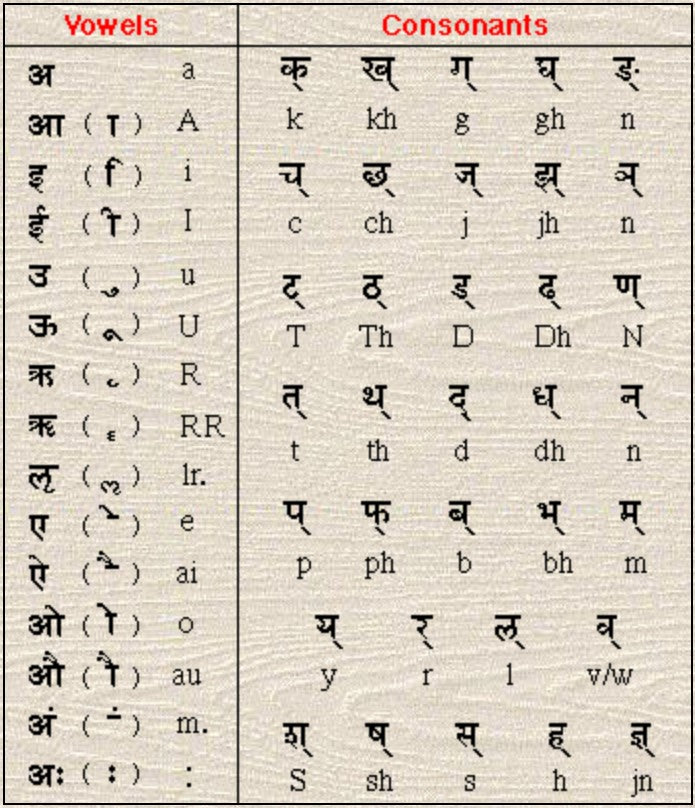 Vowels
अ a
आ ( ा ) A
इ ( ि ) i
ई ( ी ) I
उ ( ु ) u
ऊ ( ू ) U
ऋ ( ृ ) R
ॠ ( ॄ ) RR
ऌ ( ॢ ) lr.
ए ( े ) e
ऐ ( ै ) ai
ओ ( ो ) o
औ ( ौ ) au
अं ( ं ) m.
अः ( ः ) :
Consonants
क् ख् ग् घ् ङ्
k kh g gh n
च् छ् ज् झ् ञ्
c ch j jh n
ट् ठ् ड् ढ् ण्
T Th D Dh N
त् थ् द् ध् न्
t th d dh n
प् फ् ब् भ् म्
p ph b bh m
य् र् ल् व्
y r l v/w
श् ष् स् ह् ज्ञ्
S sh s h jn